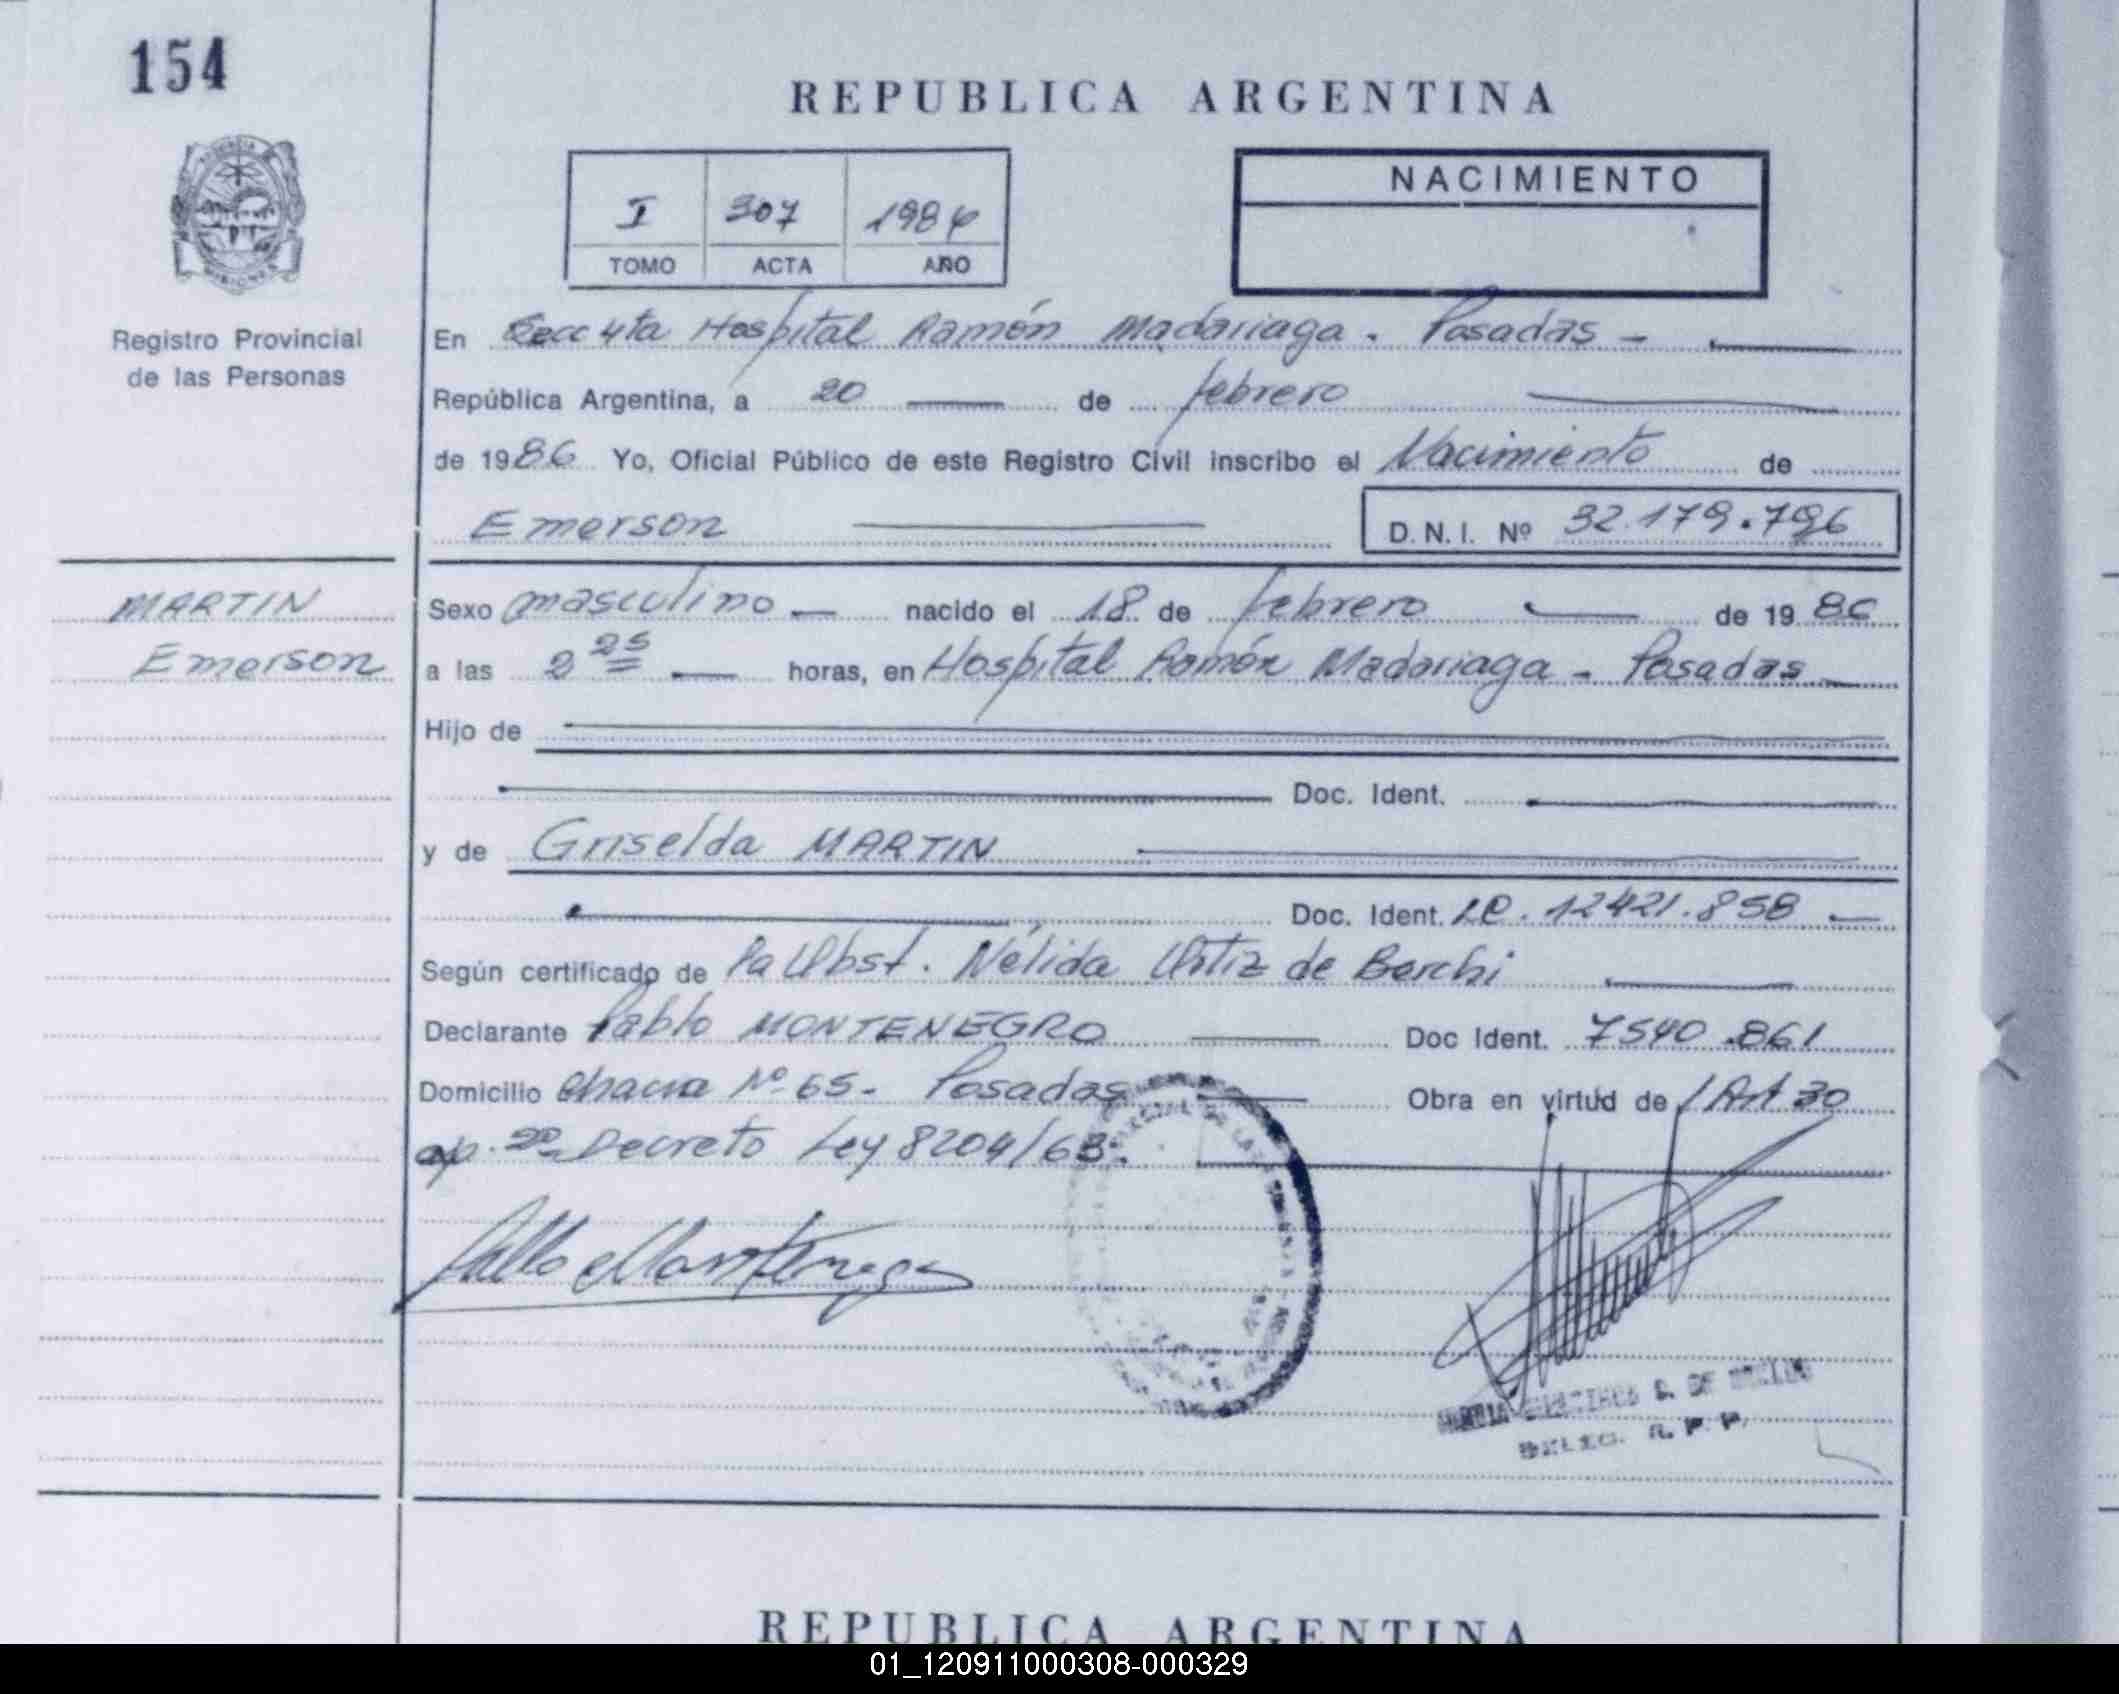 154
REPUBLICA ARGENTINA
NACIMIENTO
I 307 1986
TOMO ACTA AÑO
Registro Provincial
de las Personas
En Secc 4ta Hospital Ramón Madariaga. Posadas -
República Argentina, a 20 de febrero
de 1986 Yo, Oficial Público de este Registro Civil inscribo el Nacimiento de
Emerson D.N.I. Nº 32.179.796
MARTIN
Emerson
Sexo masculino nacido el 18 de febrero de 1986
a las 2 25 horas, en Hospital Ramón Madariaga - Posadas
Hijo de
Doc. Ident.
y de Griselda MARTIN
Doc. Ident. LC. 12421.858
Según certificado de Pa Obst. Nélida Ortiz de Barchi
Declarante Pablo MONTENEGRO Doc Ident. 7540.861
Domicilio Chacra Nº 65. Posadas Obra en virtud de Art 30
ap. 2º Decreto Ley 8204/63.
Pablo Montenegro
R. P. P.
REPUBLICA ARGENTINA
01_120911000308-000329